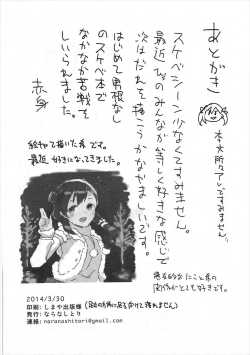 あとがき
本文所々アレですみません。
スケベシーン少なくてすみません。
最近μ'sのみんなが等しく好きな感じで
次はだれを描こうかなやましいです。
はじめて男根なし
のスケベ本で
なかなか苦戦を
しいられました。
赤身
絵が好きで描いた本です。
最近好きになってきました。
関係がとても好きです。
2014/3/30
印刷:しまや出版様(足の方角に足を向けて寝れません)
発行:ならなしとり
連絡:naranashitori@gmail.com